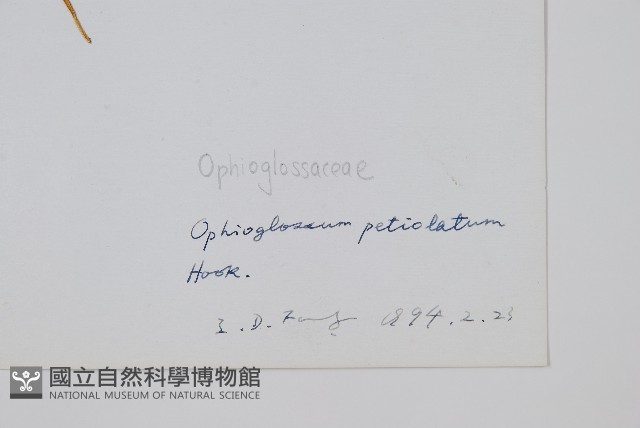 Ophioglossaceae
Ophioglossum petiolatum
Hook.
1994.2.23
國立自然科學博物館
NATIONAL MUSEUM OF NATURAL SCIENCE